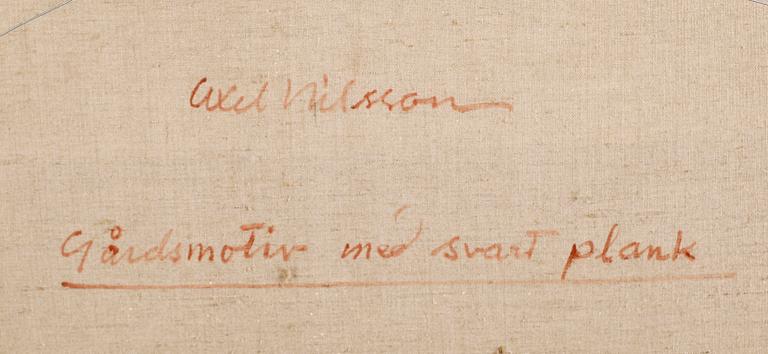 Axel Nilsson
Gårdsmotiv med svart plank